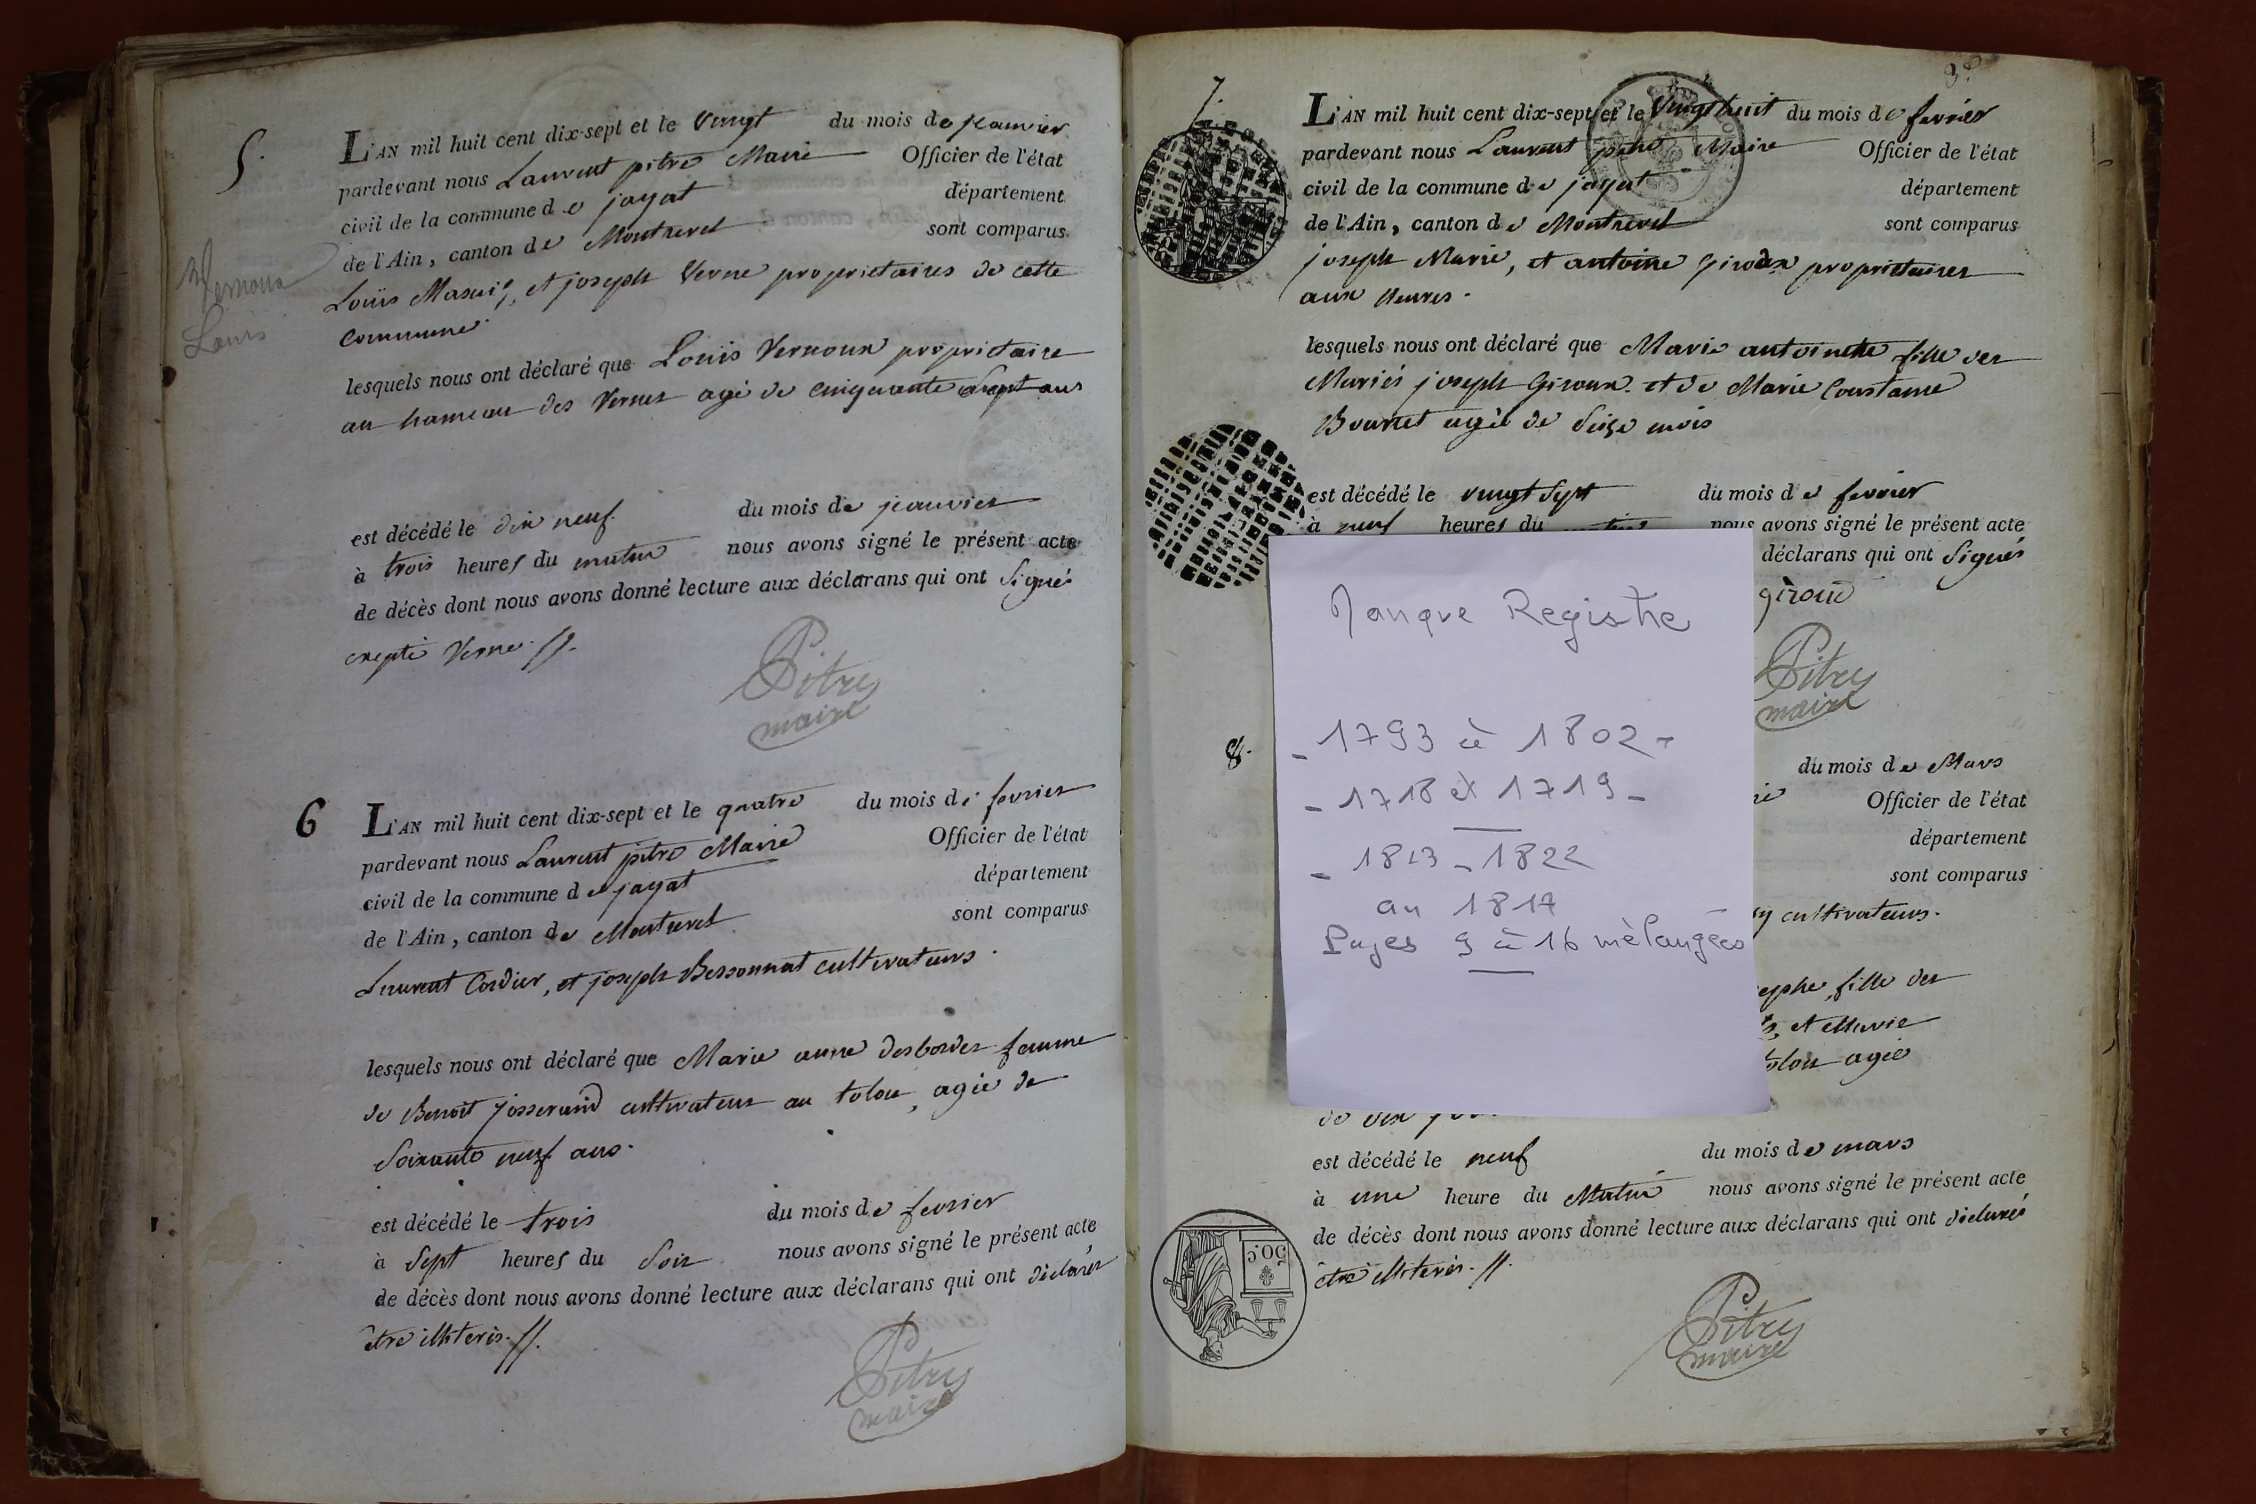 5.
L'AN mil huit cent dix-sept et le vingt du mois de janvier
pardevant nous Laurent pitre Maire Officier de l'état
civil de la commune de jayat département
de l'Ain, canton de Montrevel sont comparus
Louis et joseph Verne proprietaires de cette
commune
Vernoux
Louis
lesquels nous ont déclaré que Louis Vernoux proprietaire
au hameau des Vernes agé de cinquante sept ans
est décédé le dix neuf du mois de janvier
à trois heures du matin nous avons signé le présent acte
de décès dont nous avons donné lecture aux déclarans qui ont signés
excepté Verne
Pitre
maire
6
L'AN mil huit cent dix-sept et le quatre du mois de fevrier
pardevant nous Laurent pitre Maire Officier de l'état
civil de la commune de jayat département
de l'Ain, canton de Montrevel sont comparus
Laurent Cordier, et joseph Bessonnat cultivateurs.
lesquels nous ont déclaré que Marie anne desbordes femme
de Benoit josserand cultivateur au tolou, agée de
soixante neuf ans.
est décédé le trois du mois de fevrier
à sept heures du soir nous avons signé le présent acte
de décès dont nous avons donné lecture aux déclarans qui ont déclarés
être illiterés.
Pitre
maire
7.
L'AN mil huit cent dix-sept et le vingt huit du mois de fevrier
pardevant nous Laurent pitre Maire Officier de l'état
civil de la commune de jayat département
de l'Ain, canton de Montrevel sont comparus
joseph Marie, et antoine giroux proprietaires
aux
lesquels nous ont déclaré que Marie antoinette fille des
Mariés joseph Giroux et de Marie Constance
agée de seize mois
est décédé le vingt sept du mois de fevrier
à neuf heures du nous avons signé le présent acte
déclarans qui ont signés
giroud
Pitre
maire
Manque Registre
- 1793 à 1802 -
- 1718 et 1719 -
- 1813 - 1822
an 1817
Pages 9 à 16 mèlangées
8.
du mois de Mars
Officier de l'état
département
sont comparus
cultivateurs.
fille des
et Marie
agée
de dix
est décédé le neuf du mois de mars
à une heure du Matin nous avons signé le présent acte
de décès dont nous avons donné lecture aux déclarans qui ont déclarés
être illiterés.
50.C
Pitre
maire